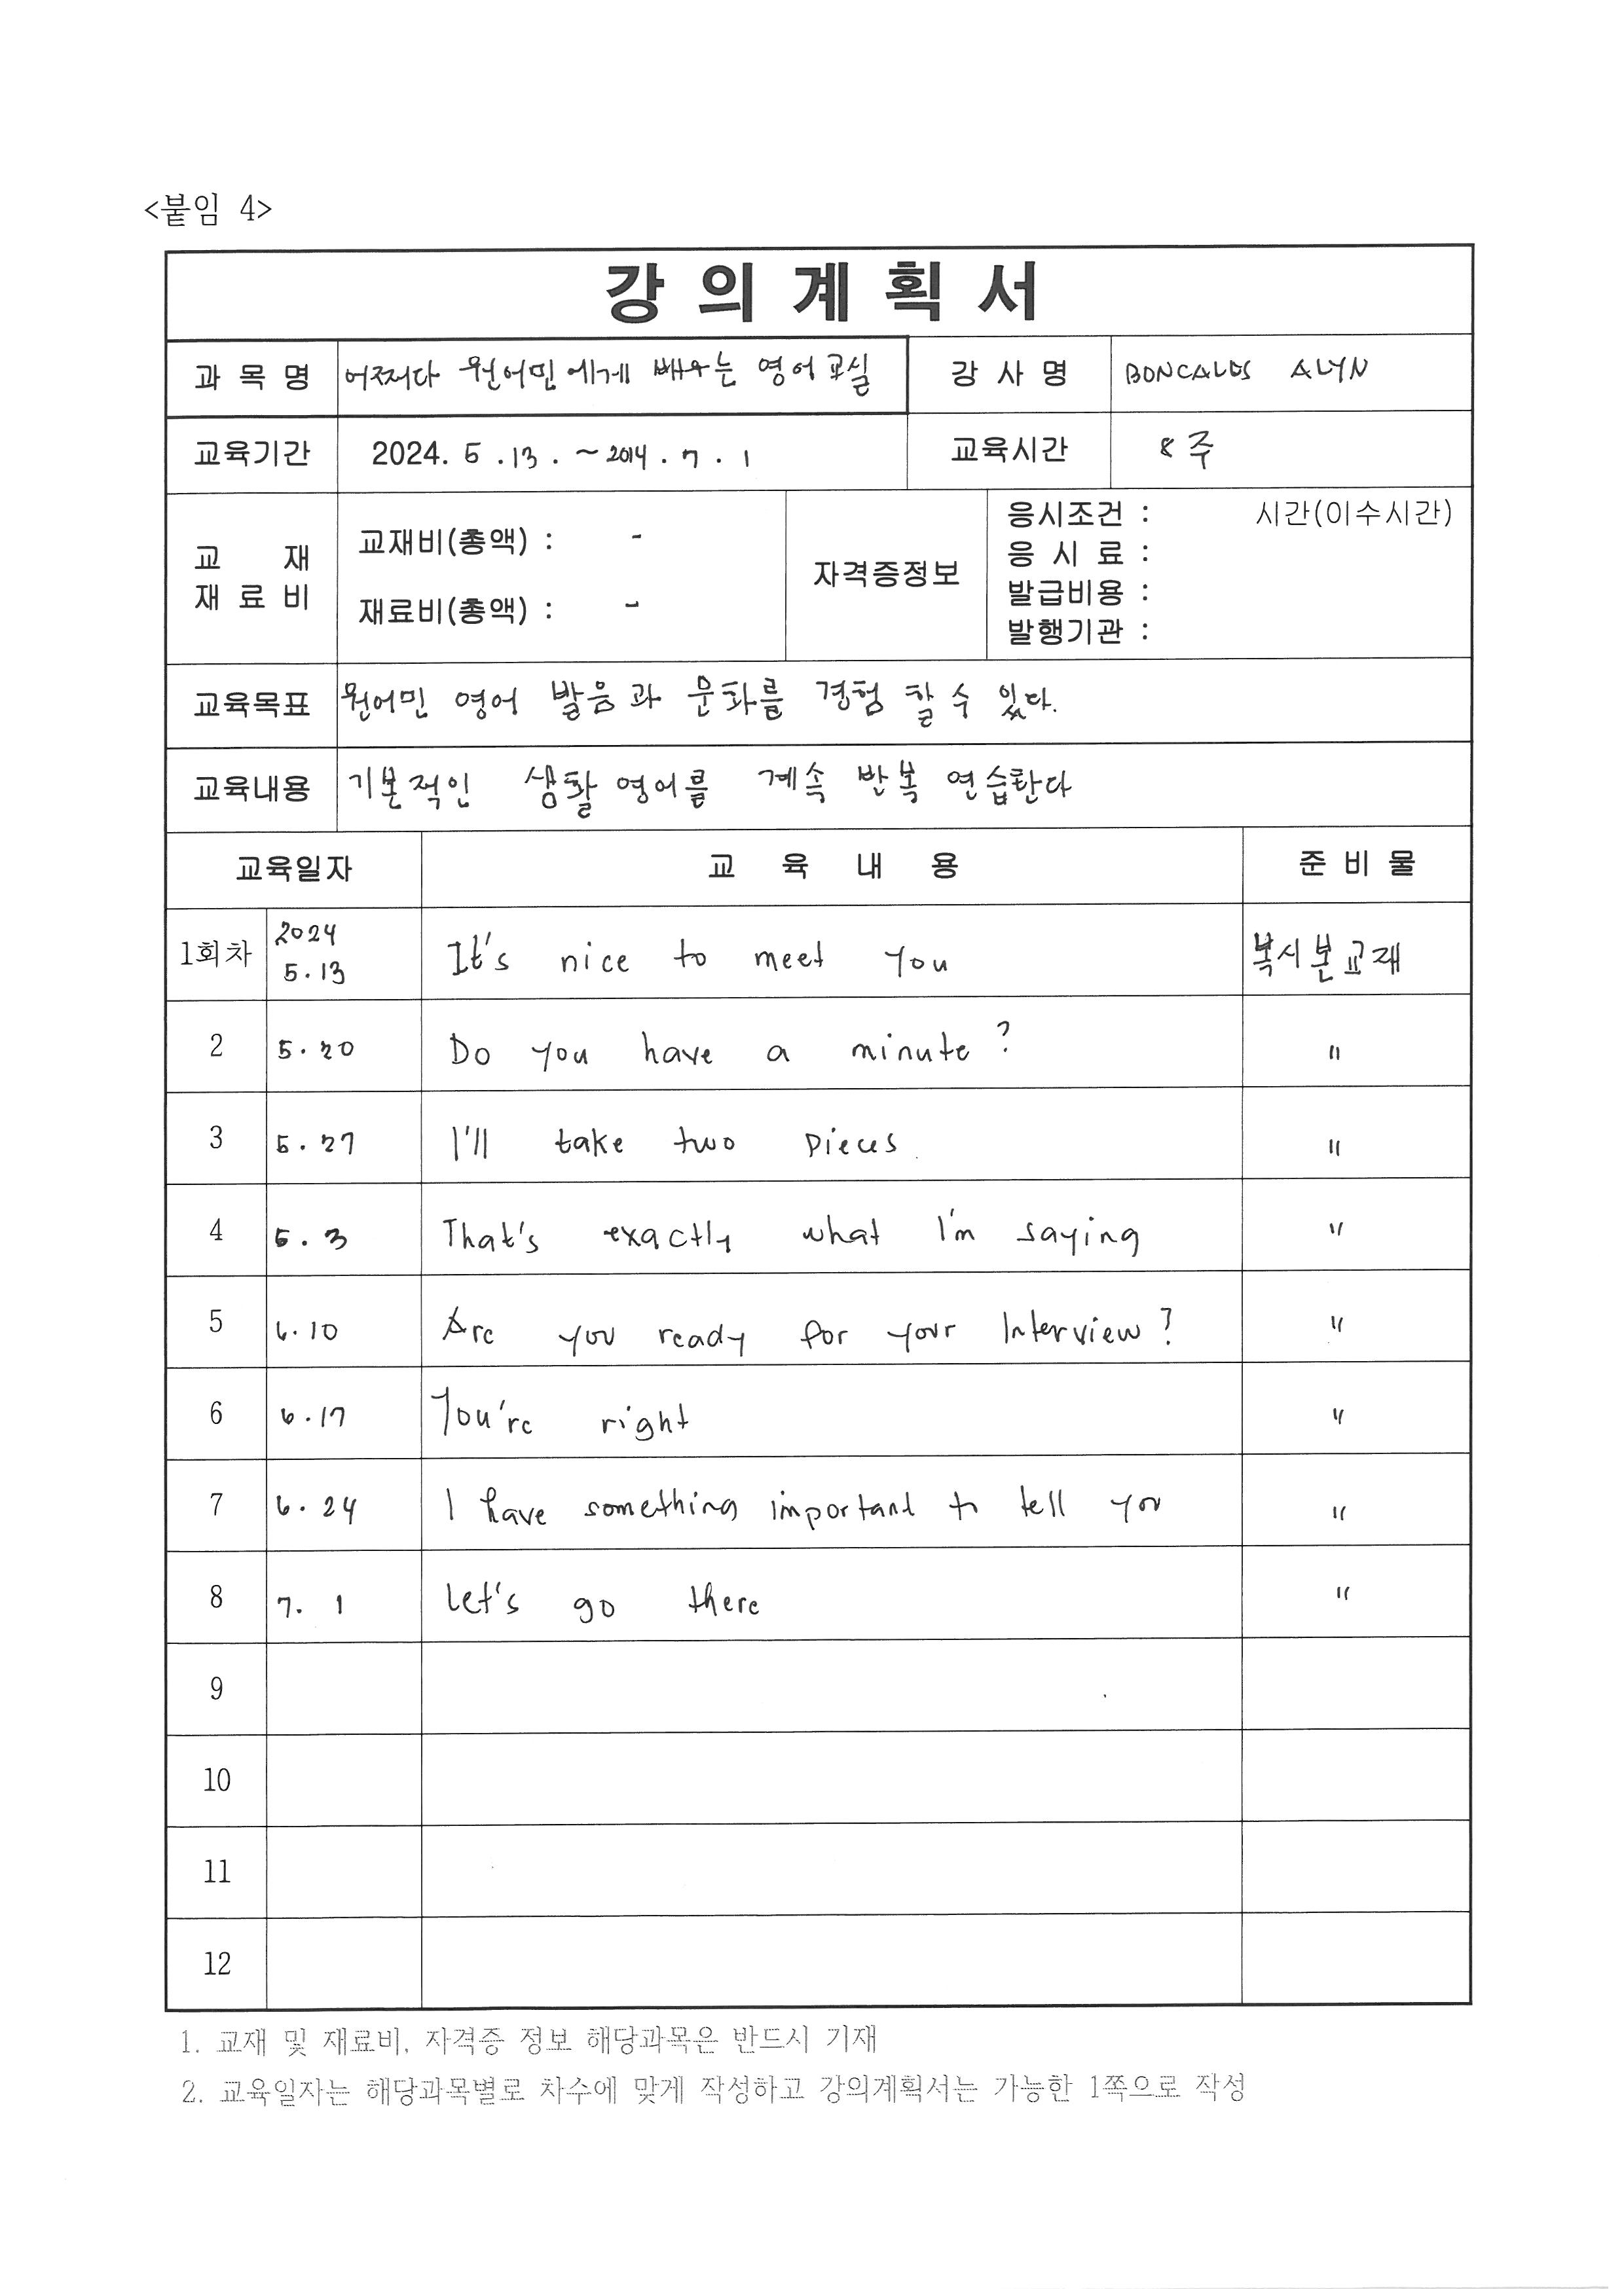 <붙임 4>
강 의 계 획 서
과 목 명 어쩌다 원어민에게 배우는 영어교실 강 사 명 BONCALES ALYN
교육기간 2024. 5 .13 . ~2014 . 7 . 1 교육시간 8주
교 재
재 료 비
교재비(총액) : -
재료비(총액) : -
자격증정보
응시조건 : 시간(이수시간)
응 시 료 :
발급비용 :
발행기관 :
교육목표 원어민 영어 발음과 문화를 경험 할 수 있다.
교육내용 기본적인 생활 영어를 계속 반복 연습한다
교육일자 교 육 내 용 준 비 물
1회차 2024 5.13 It's nice to meet you 복사본교재
2 5.20 Do you have a minute? "
3 5.27 I'll take two pieces "
4 5.3 That's exactly what I'm saying "
5 6.10 Are you ready for your Interview? "
6 6.17 You're right "
7 6.24 I have something important to tell you "
8 7. 1 Let's go there "
9
10
11
12
1. 교재 및 재료비, 자격증 정보 해당과목은 반드시 기재
2. 교육일자는 해당과목별로 차수에 맞게 작성하고 강의계획서는 가능한 1쪽으로 작성